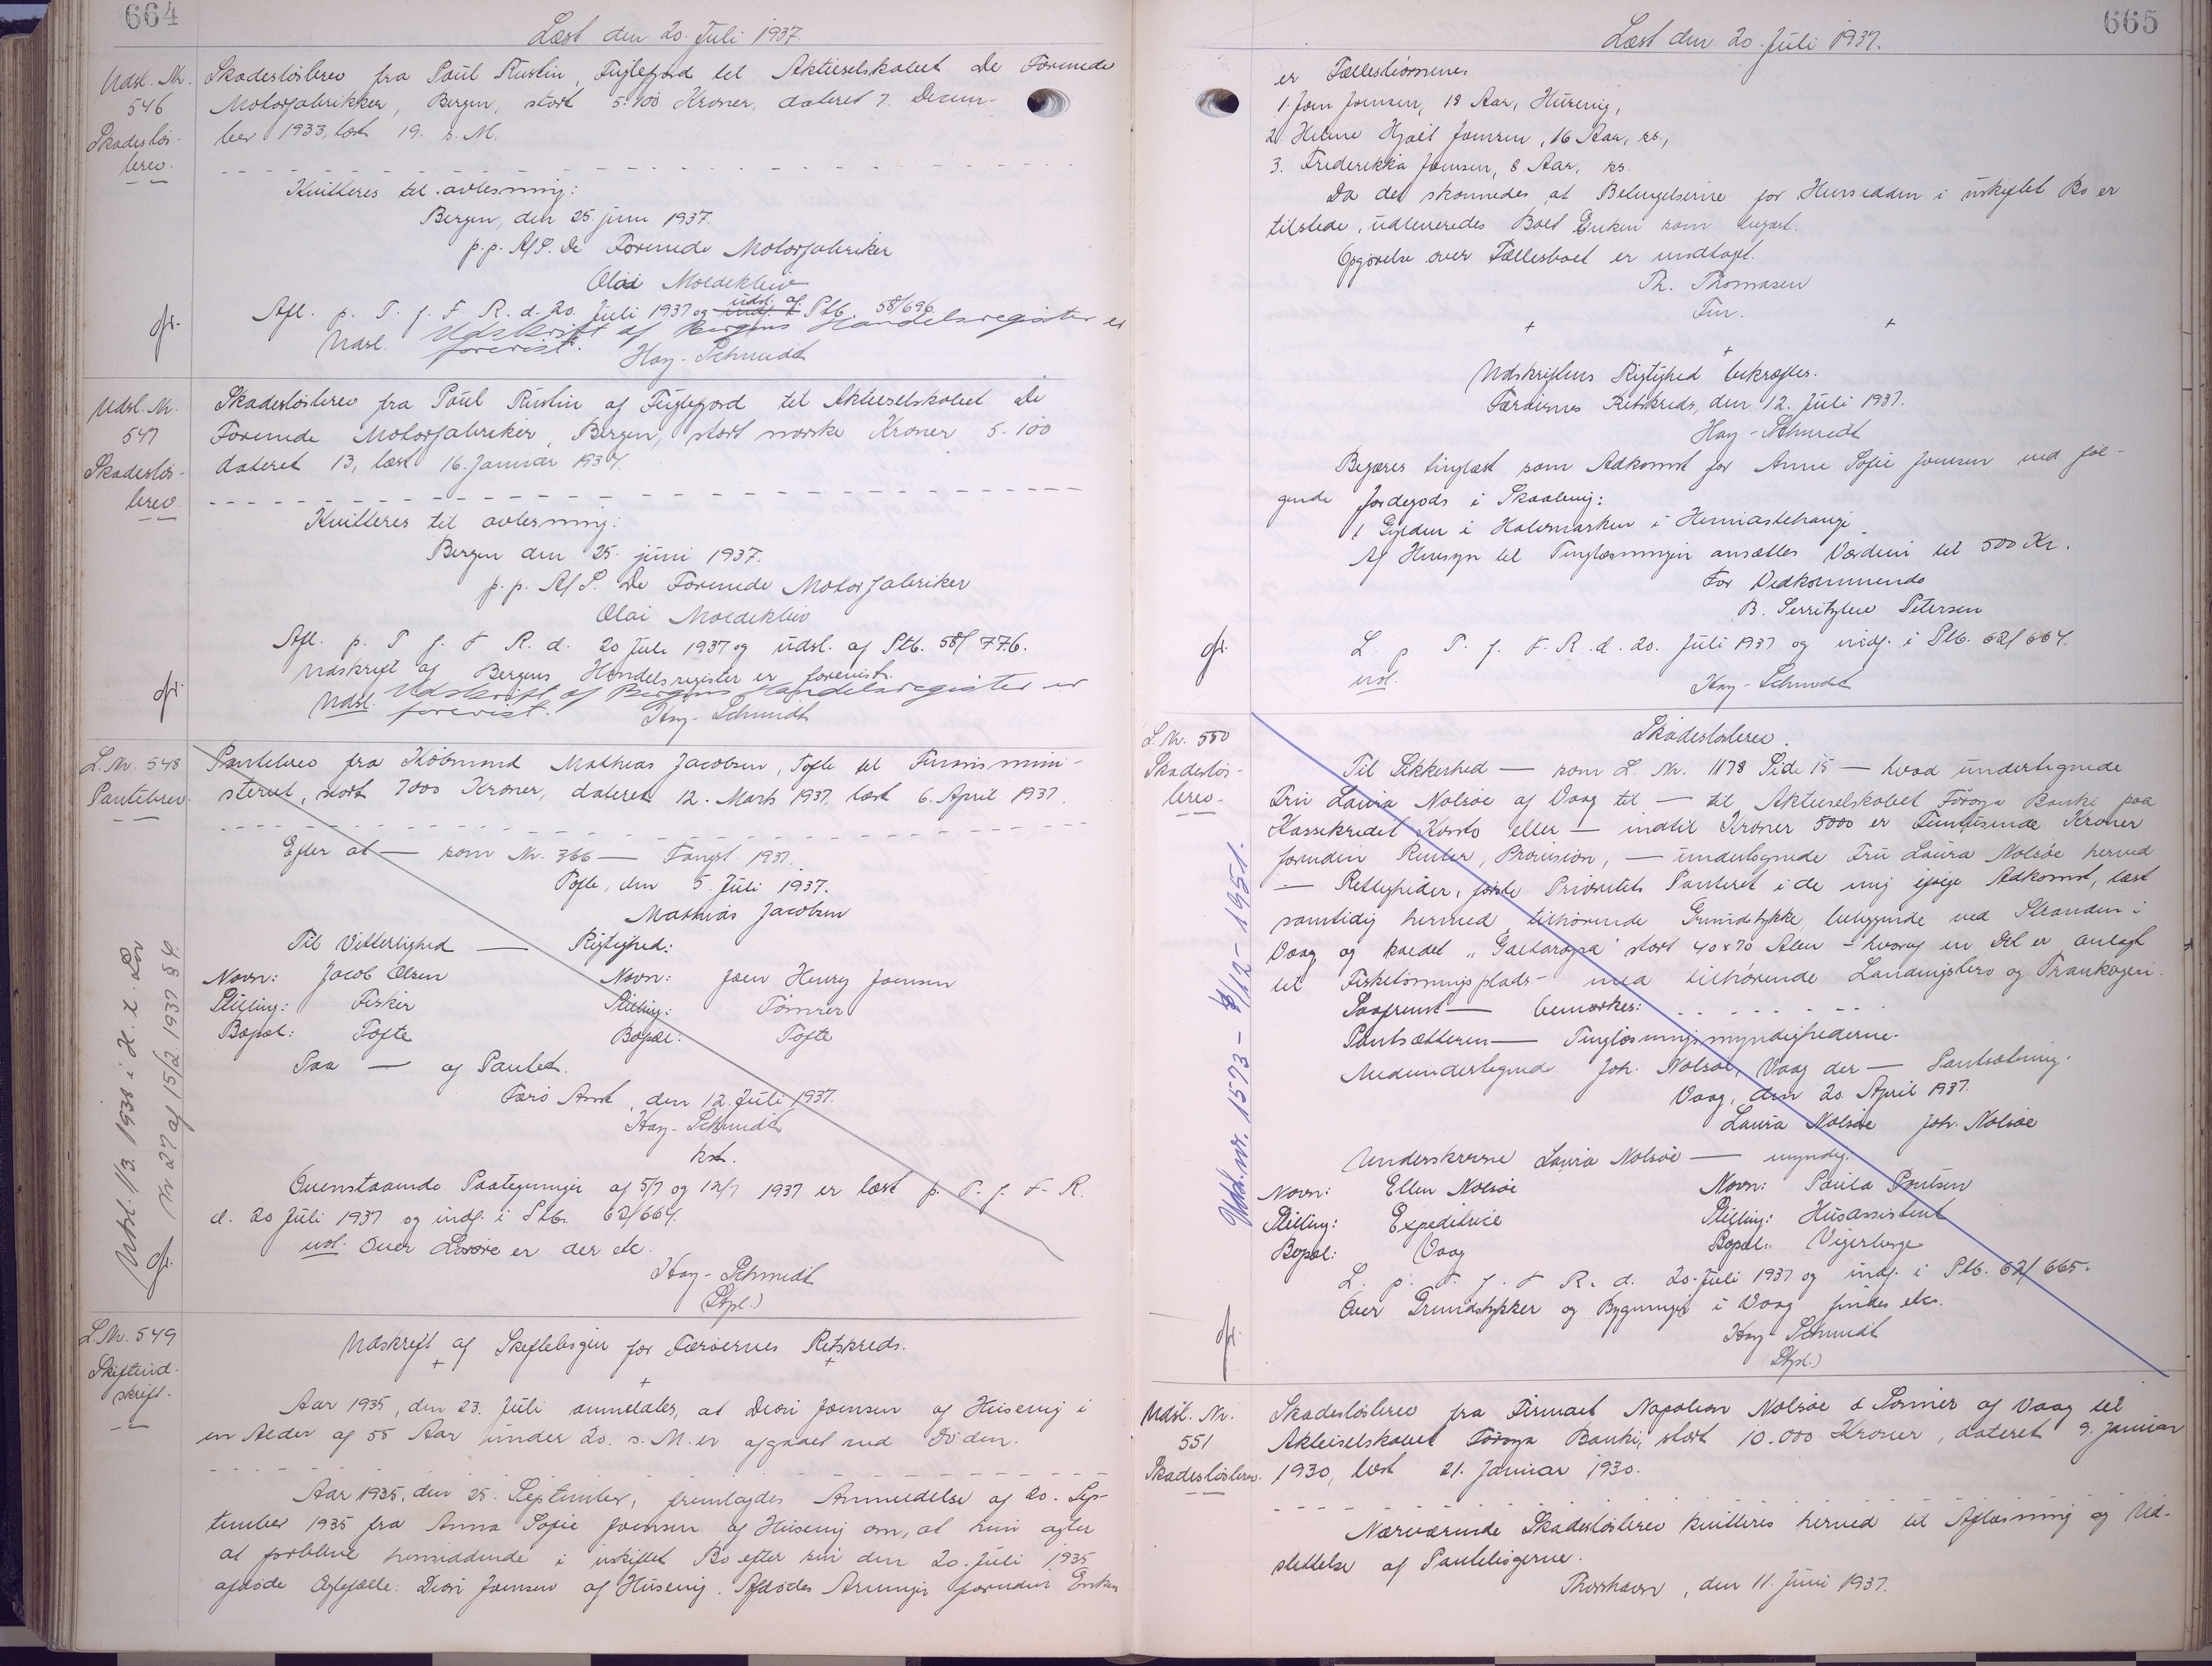 664
Læst den 20. Juli 1937.
Udsl. Nr. 546 Skadesløsbrev.
Skadesløsbrev fra Poul Rustin, Fuglefjord til Aktieselskabet De Forenede
Motorfabrikker, Bergen, stort 5.100 Kroner, dateret 7. Decem-
ber 1933, læst 19. s. M.
Kvitteres til avlesning:
Bergen, den 25. juni 1937.
p.p. A/S. De Forenede Motorfabriker
Olai Moldeklev
Afl. p. T. f. F. R. d. 20. Juli 1937 og udsl. af Ptb. 58/696.
Udsl. Udskrift af Bergens Handelsregister er
forevist.
Hay-Schmidt
Udsl. Nr. 547 Skadesløs-brev.
Skadesløsbrev fra Poul Rustin af Fuglefjord til Aktieselskabet De
Forenede Motorfabriker, Bergen, stort norske Kroner 5.100
dateret 13, læst 16. Januar 1934.
Kvitteres til avlesning:
Bergen den 25. juni 1937.
p.p. A/S. De Forenede Motorfabriker
Olai Moldeklev
Afl. p. T. f. F. R. d. 20 Juli 1937 og udsl. af Ptb. 58/776.
Udskrift af Bergens Handelsregister er forevist.
Udsl. Udskrift af Bergens Handelsregister er
forevist.
Hay-Schmidt
L. Nr. 548 Pantebrev.
Pantebrev fra Købmand Mathias Jacobsen, Tofte til Finansmini-
steriet, stort 7000 Kroner, dateret 12. Marts 1937, læst 6. April 1937.
Efter at — som Nr. 366 — Fangst 1937.
Tofte, den 5. Juli 1937.
Mathias Jacobsen
Til Vitterlighed — Rigtighed:
Navn: Jacob Olsen Navn: Joen Henry Joensen
Stilling: Fisker Stilling: Tømrer
Bopæl: Tofte Bopæl: Tofte
Paa — og Panted.
Færø Amt, den 12. Juli 1937.
Hay-Schmidt
kst.
Ovenstaaende Paategninger af 5/7 og 12/7 1937 er læst p. T. f. F. R.
d. 20 Juli 1937 og indf. i Ptb. 62/664.
Over er der etc.
Hay-Schmidt
(Stpl.)
Udsl. 1/3. 1938 i H. t. Lov
Nr 27 af 15/2. 1937 § 4.
L. Nr. 549 Skifteud-skrift.
Udskrift af Skiftebogen for Færøernes Retskreds.
Aar 1935, den 23. Juli anmeldtes, at Joensen af Húsavig i
en Alder af 55 Aar under 20. s. M. er afgaaet ved Døden.
Aar 1935, den 25. September, fremlagdes Anmeldelse af 20. Sep-
tember 1935 fra Anna Sofie Joensen af Húsavig om, at hun agter
at forblive hensiddende i uskiftet Bo efter sin den 20. Juli 1935
afdøde Ægtefælle: Joensen af Húsavig. Afdødes Arvinger foruden Enken
665
Læst den 20. Juli 1937.
er Fællesbørnene:
1. Joen Joensen, 18 Aar, Húsavig,
2. Hjalt Joensen, 16 Aar, ss.,
3. Frederikka Joensen, 8 Aar, ss.
Da det skønnedes at Betingelserne for Hensidden i uskiftet Bo er
tilstede, udleveredes Boet Enken som begært.
Opgørelse over Fællesboet er modtaget.
Th. Thomasen
Fm.
Udskriftens Rigtighed bekræftes.
Færøernes Retskreds, den 12. Juli 1937.
Hay-Schmidt
Begæres tinglæst som Adkomst for Anne Sofie Joensen ved føl-
gende Jordegods i Skaalevig:
1 Gylden i
Af Hensyn til Tinglæsningen ansættes Værdien til 500 Kr.
For Vedkommende
B. Serritzlew Petersen
L. p. T. f. F. R. d. 20. Juli 1937 og indf. i Ptb. 62/664.
Hay-Schmidt
L. Nr. 550 Skadesløs-brev.
Skadesløsbrev.
Til Sikkerhed — som L. Nr. 1178 Side 15 — hvad undertegnede
Fru Laura Nolsøe af Vaag til — til Aktieselskabet Føroya Banki paa
Kassekredit Konto eller — indtil Kroner 5000 er Femtusinde Kroner
foruden Renter, Provision, — undertegnede Fru Laura Nolsøe herved
— Rettigheder, første Prioritets Panteret i de mig ifølge Adkomst, læst
samtidig hermed, tilhørende Grundstykke beliggende ved Stranden i
Vaag og kaldet stort 40x70 Alen - hvoraf en Del er anlagt
til Fisketørringsplads - med tilhørende Landingsbro og Trankogeri.
Saafremt — bemærkes:
Pantsætteren — Tinglæsningsmyndighederne.
Medundertegnede Joh. Nolsøe, Vaag der — Pantsætning.
Vaag, den 20. April 1937.
Laura Nolsøe Joh. Nolsøe
Underskrevne Laura Nolsøe — myndig.
Navn: Ellen Nolsøe Navn: Paula Poulsen
Stilling: Expeditrice Stilling: Husassistent
Bopæl: Vaag Bopæl: Vejerberge
L. p. T. f. F. R. d. 20. Juli 1937 og indf. i Ptb. 62/665.
Over Grundstykker og Bygninger i Vaag findes etc.
Hay-Schmidt
(Stpl.)
Udsl. Nr. 551 Skadesløsbrev.
Skadesløsbrev fra Firmaet Napoleon Nolsøe & Sønner af Vaag til
Aktieselskabet Føroya Banki, stort 10.000 Kroner, dateret 9. Januar
1930, læst 21. Januar 1930.
Nærværende Skadesløsbrev kvitteres herved til Aflæsning og Ud-
slettelse af Pantebøgerne.
Thorshavn, den 11. Juni 1937.